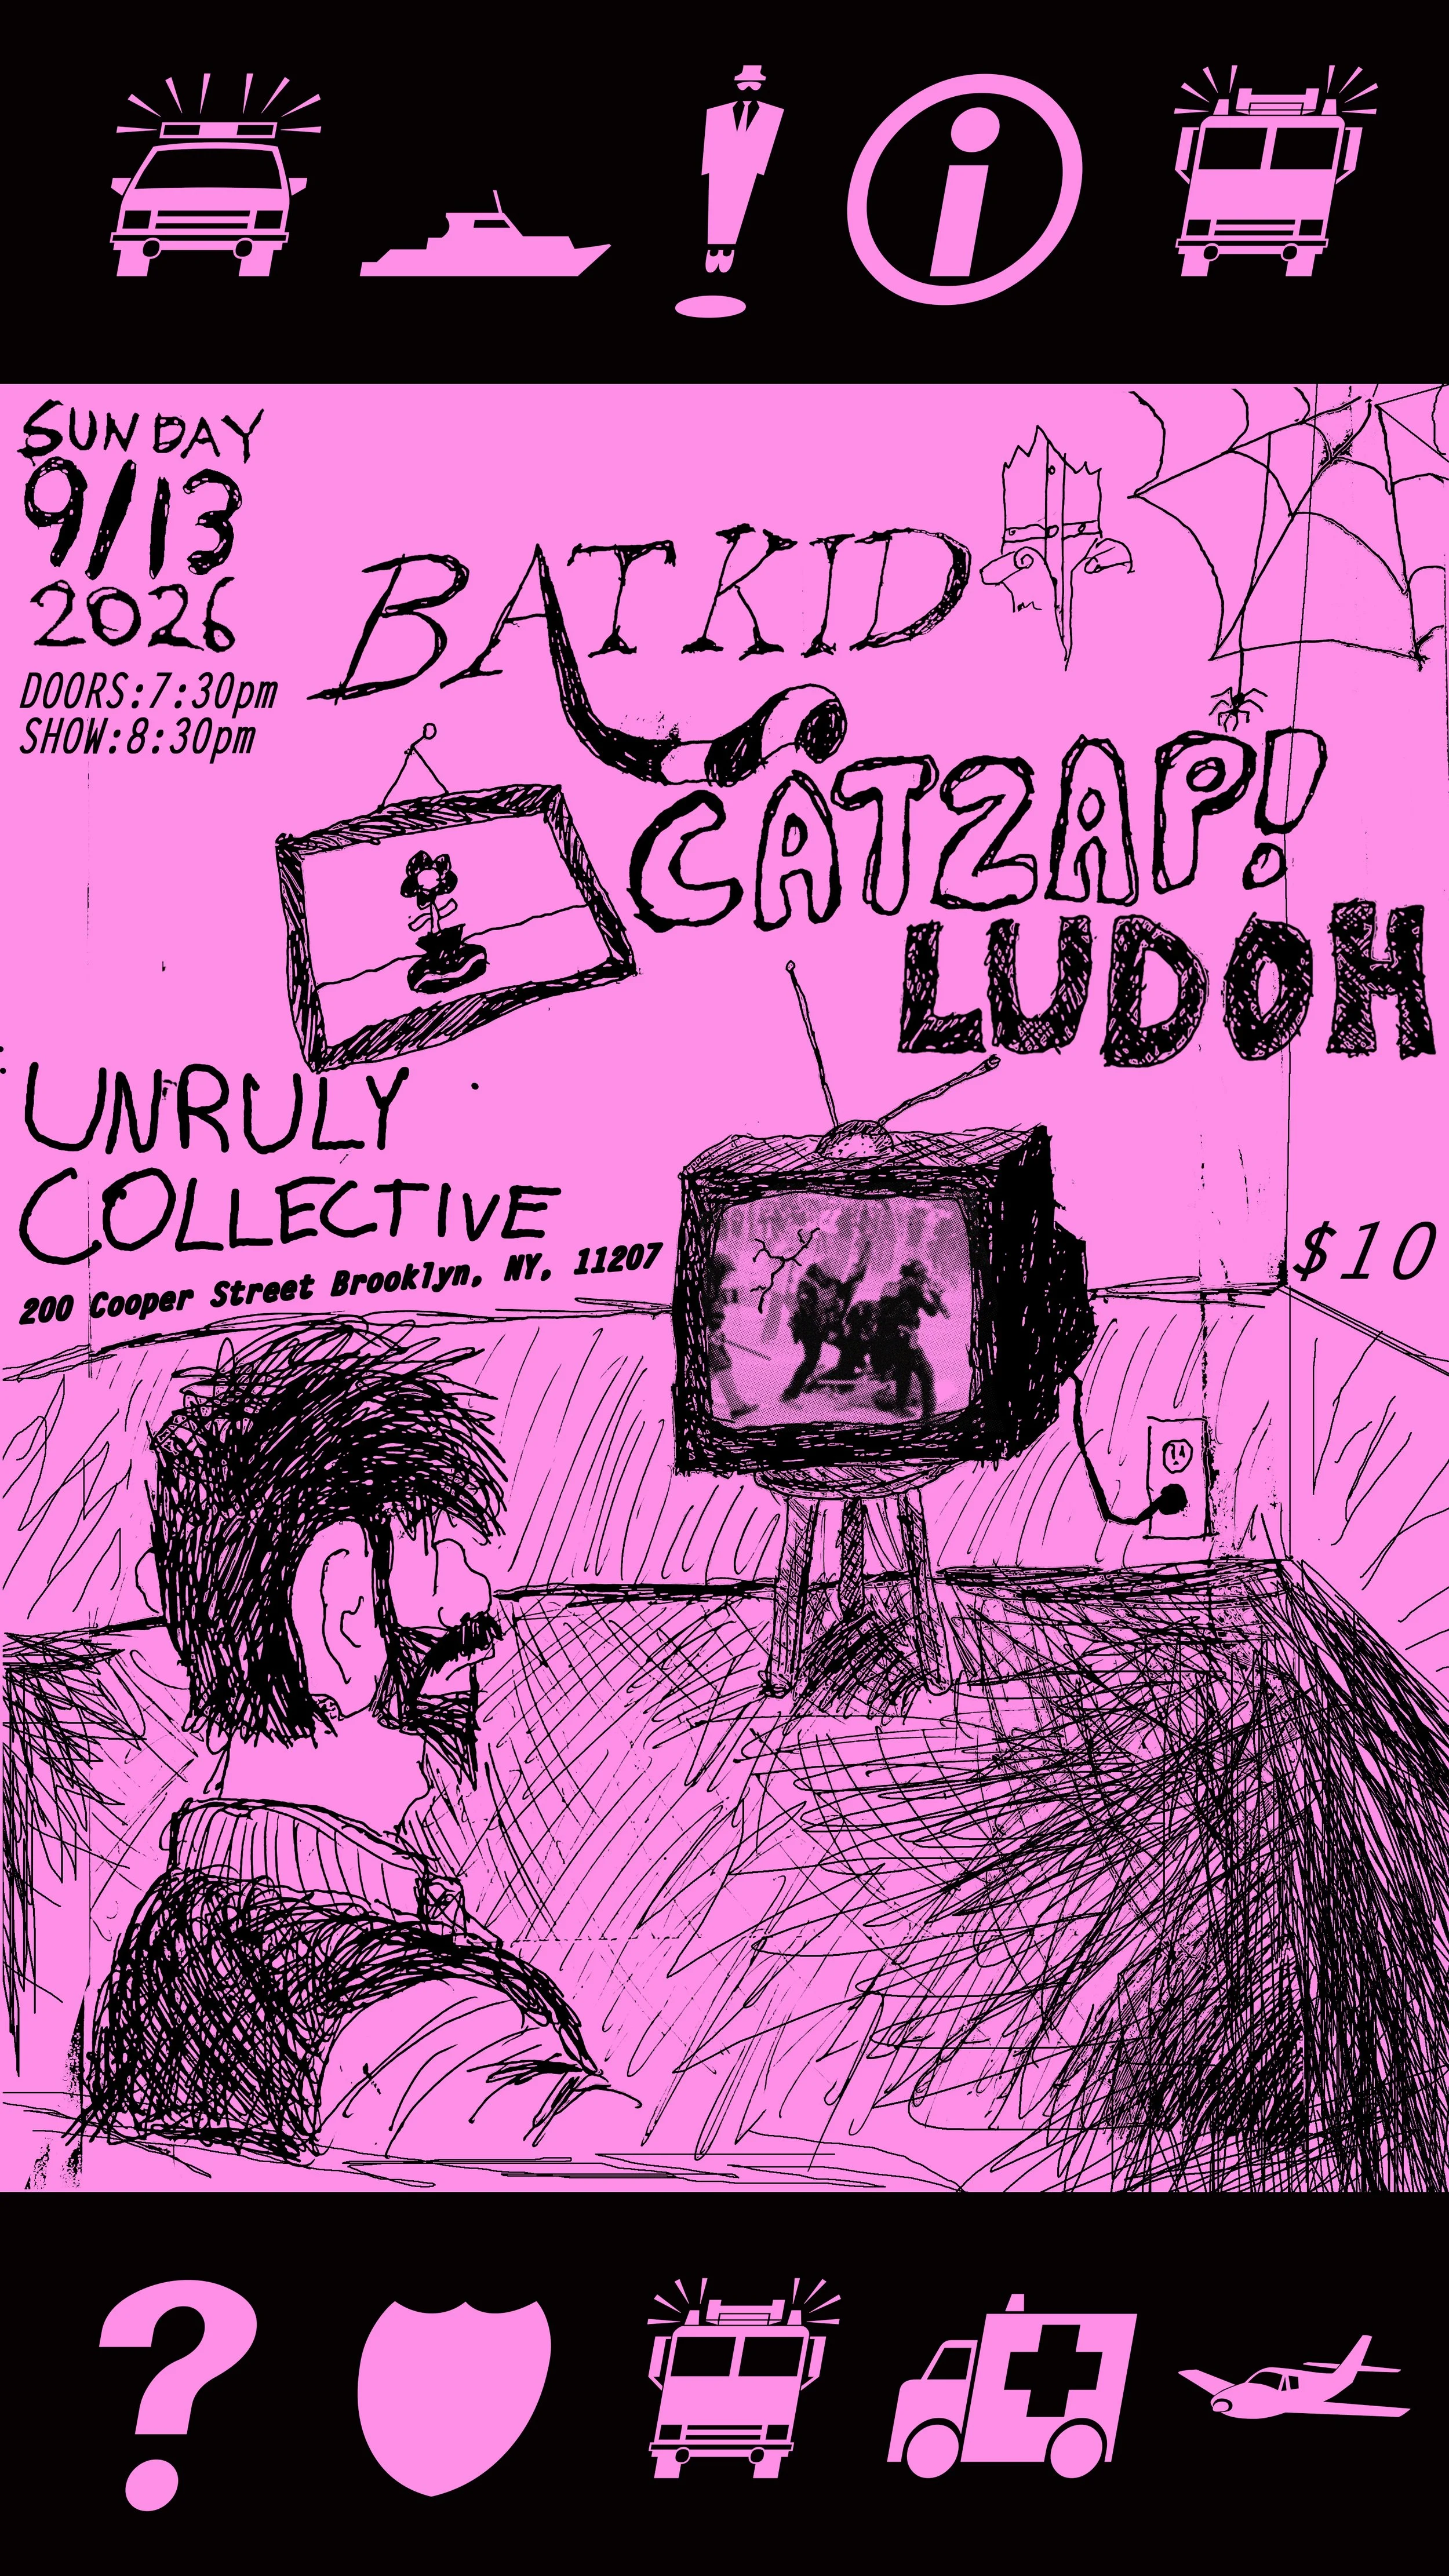 SUNDAY
9/13
2026
DOORS:7:30pm
SHOW:8:30pm
BATKID
CATZAP!
LUDOH
UNRULY
COLLECTIVE
200 Cooper Street Brooklyn, NY, 11207
$10